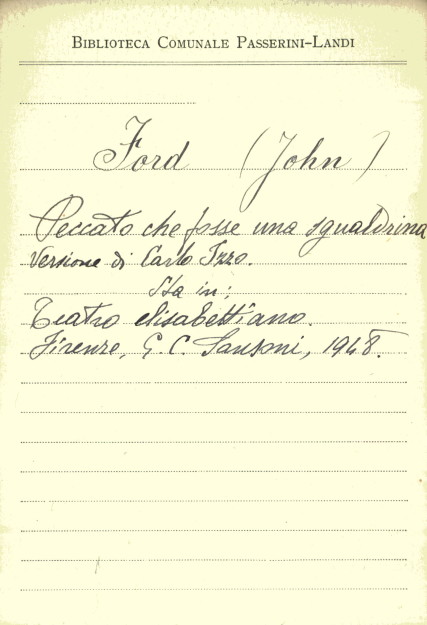 BIBLIOTECA COMUNALE PASSERINI-LANDI
Ford (John)
Peccato che fosse una sgualdrina
Versione di Carlo Izzo.
Sta in:
Teatro elisabettiano.
Firenze, G. C. Sansoni, 1948.